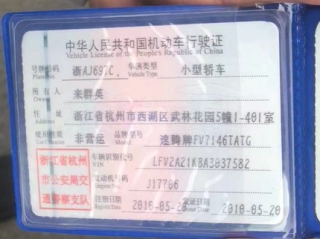 中华人民共和国机动车行驶证
Vehicle License of the People's Republic of China
号牌号码 浙AJ697C 车辆类型 小型轿车
Plate No. Vehicle Type
所有人 来群英
Owner
住址 浙江省杭州市西湖区武林花园5幢1-401室
Address
使用性质 非营运 品牌型号 速腾牌FV7146TATG
Use Character Model
浙江省杭州 车辆识别代号 LFV2A21K8A3037582
VIN
市公安局交 发动机号码 J17766
Engine No.
通警察支队 注册日期 2010-05-20 发证日期 2010-05-20
Register Date Issue Date